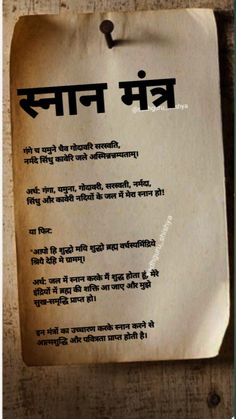 स्नान मंत्र
गंगे च यमुने चैव गोदावरि सरस्वति,
नर्मदे सिंधु कावेरि जले
अर्थ: गंगा, यमुना, गोदावरी, सरस्वती, नर्मदा,
सिंधु और कावेरी नदियों के जल में मेरा स्नान हो!
या फिर:
"आपो हि शुद्धो मयि शुद्धो ब्रह्म
श्रियै देहि मे
अर्थ: जल में स्नान करके मैं शुद्ध होता हूं, मेरे
इंद्रियों में ब्रह्म की शक्ति आ जाए और मुझे
सुख-समृद्धि प्राप्त हो।
इन मंत्रों का उच्चारण करके स्नान करने से
आत्मशुद्धि और पवित्रता प्राप्त होती है।